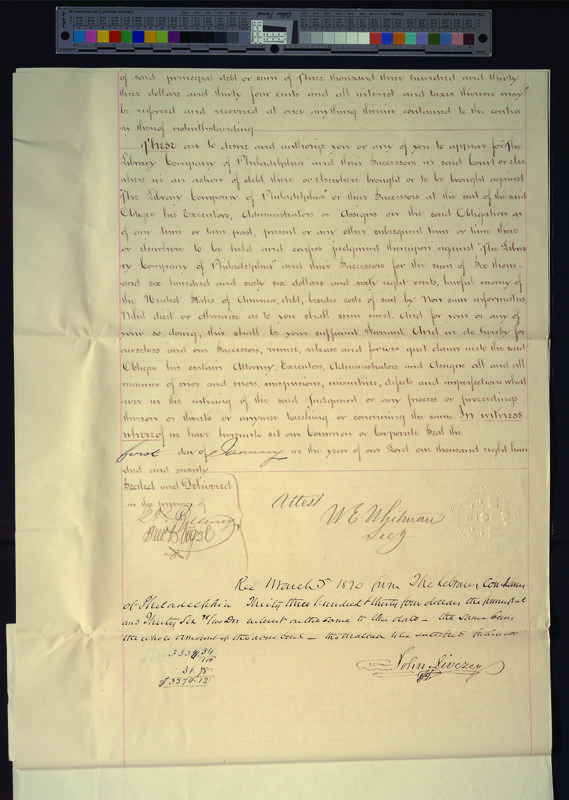 of said principal debt or sum of Three thousand three hundred and thirty
three dollars and thirty four cents and all interest and taxes thereon may
be enforced and recovered at once anything therein contained to the contra
ry thereof notwithstanding
These are to desire and authorize you or any of you to appear for "The
Library Company of Philadelphia" and their Successors in said Court or else
where in an action of debt there or elsewhere brought or to be brought against
"The Library Company of Philadelphia" or their Successors at the suit of the said
Obligee his Executors, Administrators or Assigns on the said Obligation as
of any term or time past, present or any other subsequent term or time there
or elsewhere to be held and confess judgment thereupon against "The Libra
ry Company of Philadelphia" and their Successors for the sum of Six thous-
and six hundred and sixty six dollars and sixty eight cents, lawful money of
the United States of America, debt, besides costs of suit by Non sum informatus
Nihil dicit or otherwise as to you shall seem meet. And for your or any of
your so doing, this shall be your sufficient Warrant. And we do hereby for
ourselves and our Successors, remise, release and forever quit claim unto the said
Obligee his certain Attorney, Executors, Administrators and Assigns all and all
manner of error and errors, misprisions, misentries, defects and imperfections what
ever in the entering of the said Judgment or any process or proceedings
thereon or thereto or anywise touching or concerning the same. In witness
whereof we have hereunto set our Common or Corporate Seal the
first day of January in the year of our Lord one thousand eight hun
dred and seventy
Sealed and Delivered
in the presence of
Attest
W. E. Whitman
Secy
Rec March 5 1870 from The Library Company
of Philadelphia Thirty three hundred & thirty four dollars the principal
and Thirty Six interest on the same to this date - the same being
the whole amount of the above bond -
John Livezey